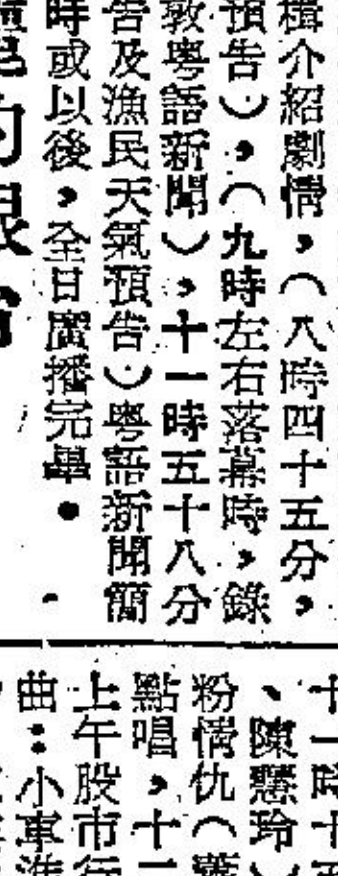 楫介紹劇情，（八時四十五分，
預告），（九時左右落幕時，錄
敦粵語新聞），十一時五十八分
告及漁民天氣預告）粵語新聞簡
時或以後，全日廣播完畢●
的銀
十一時十五
、陳慧玲）
粉情仇（蕭
點唱，十二
上午股市行
曲：小車